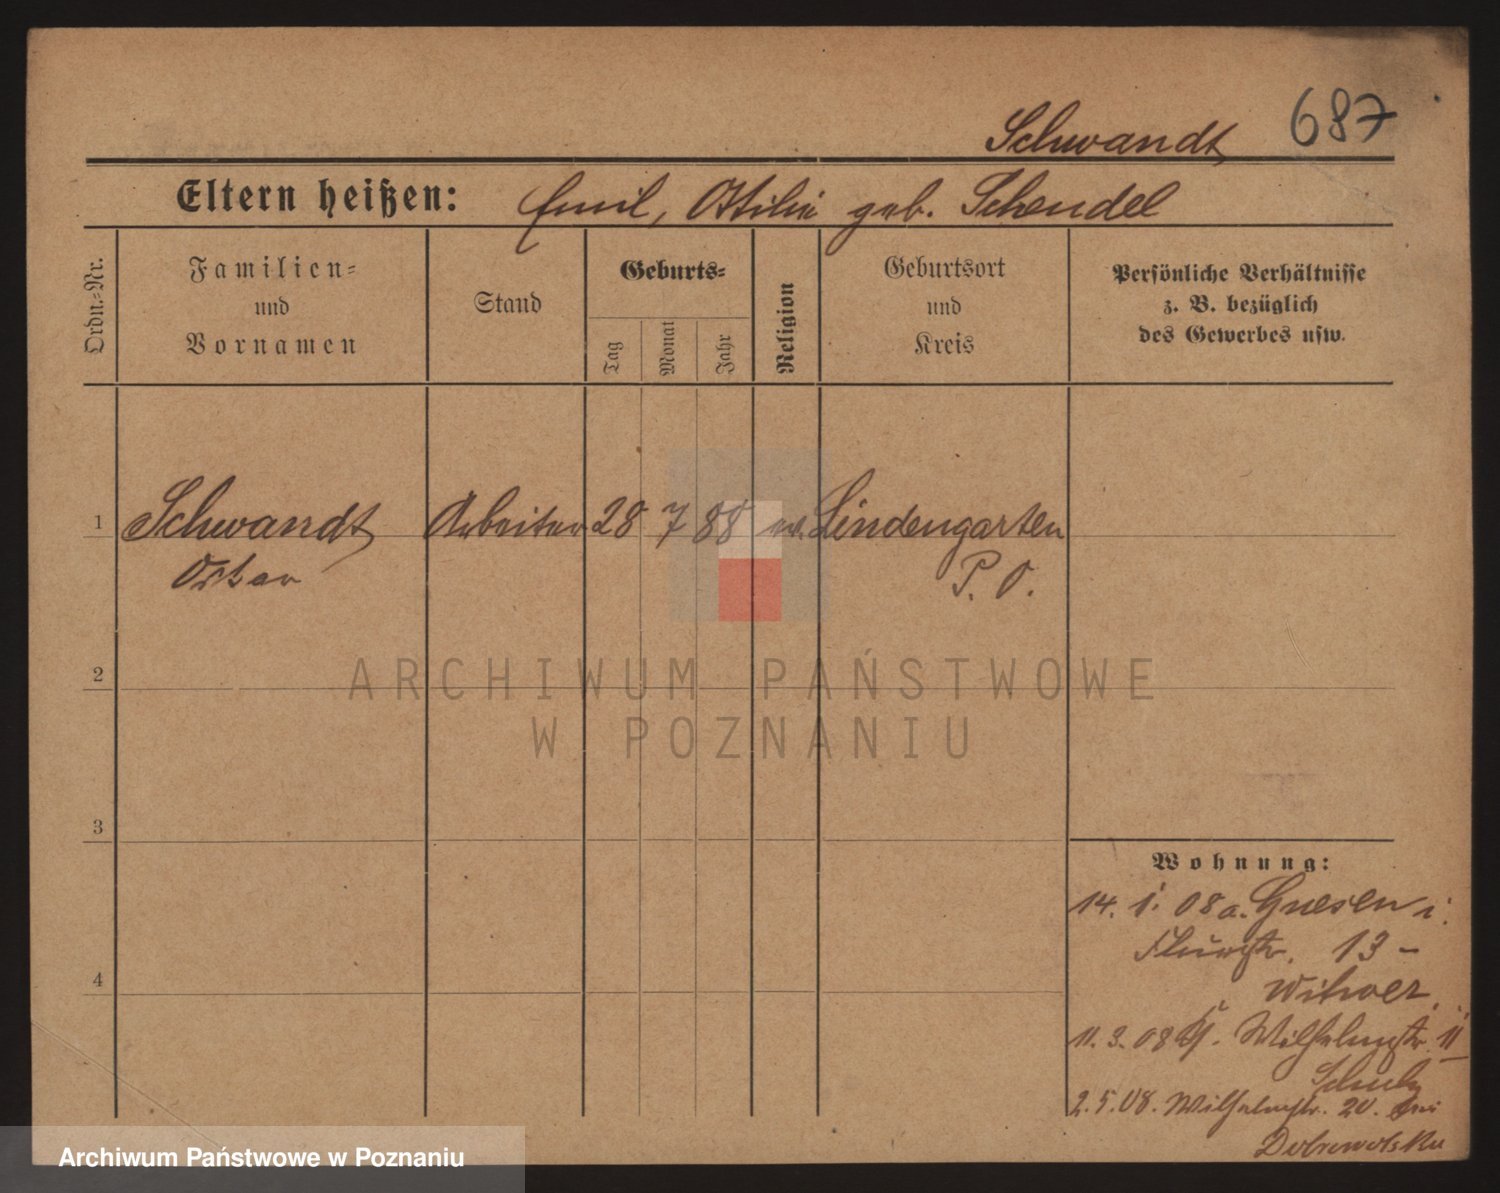 Schwandt 687
Eltern heißen: Emil, Ottilie geb. Schendel
Ordn.-Nr.
Familien-
und
Vornamen
Stand
Geburts-
Tag
Monat
Jahr
Religion
Geburtsort
und
Kreis
Persönliche Verhältnisse
z. B. bezüglich
des Gewerbes usw.
1 Schwandt Arbeiter 28 7 88 ev. Lindengarten
Oskar P. O.
2
3
4
ARCHIWUM PAŃSTWOWE
W POZNANIU
Wohnung:
14. 1. 08 a. Gnesen i.
13 -
11. 3. 08 Wilhelmstr. 11
Schulz
2. 5. 08. Wilhelmstr. 20. bei
Dobrowolska
Archiwum Państwowe w Poznaniu